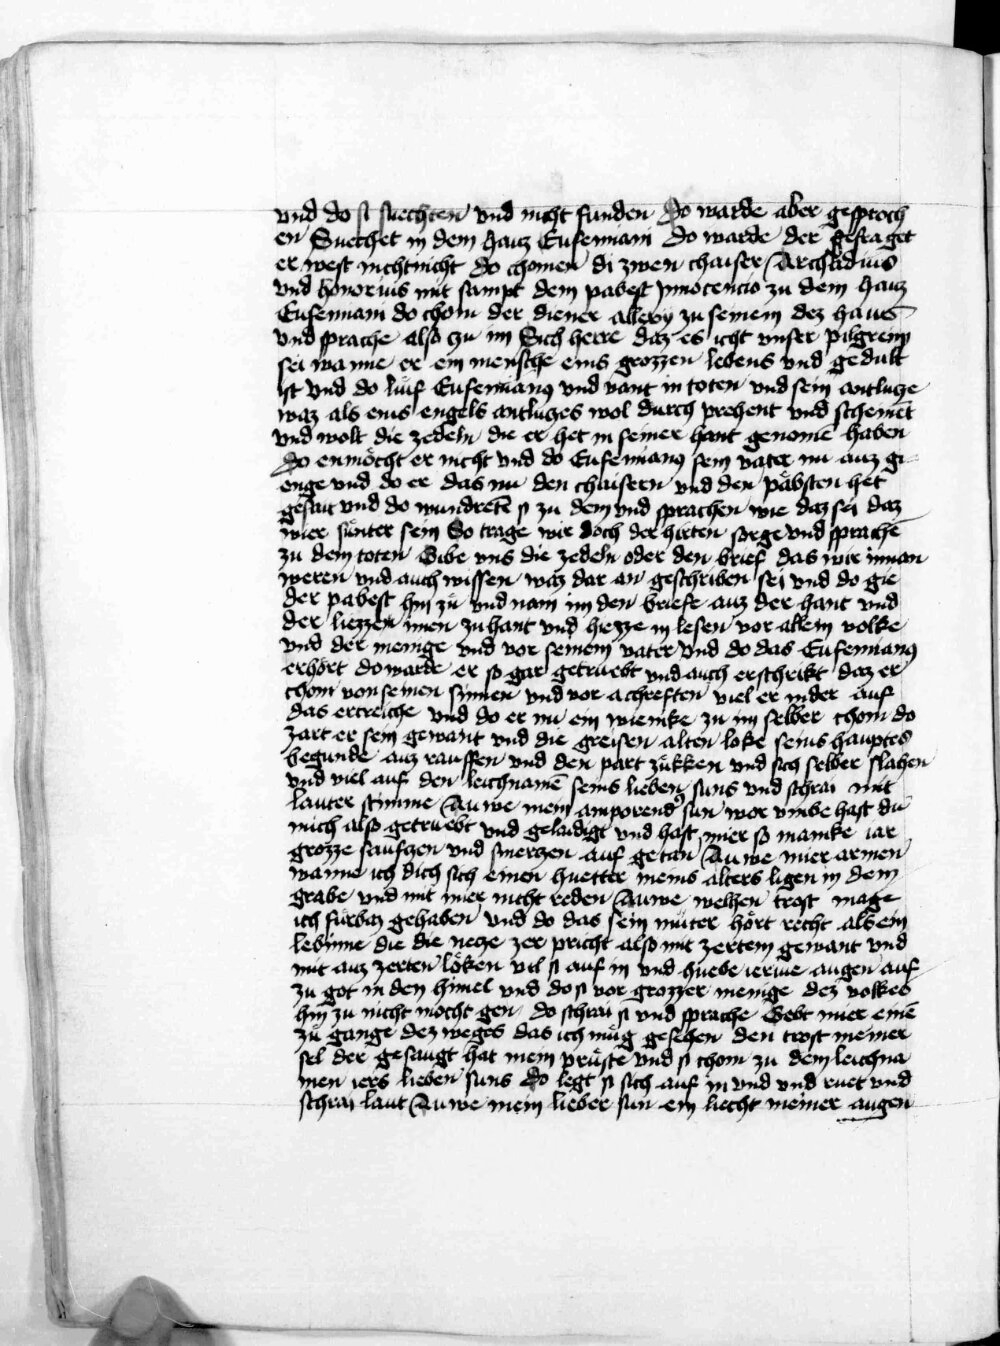 vnd do si suechten vnd nicht funden Do warde aber gesproch
en Suechet in dem hauz Eufemiani do warde der gefraget
er west nichtnicht do chomen di zwen chaiser Archadius
vnd honorius mit sampt dem pabest ynnocencio zu dem hauz
Eufemiani do chom der diener allexy zu seinem dez hauē
vnd sprache also zu im Sich herre daz es icht vnser pilgreim
sei wanne er ein mensche eins grozzen lebens vnd gedult
ist vnd do luif Eufemianus vnd vant in toten vnd sein antlutze
waz als eins engels antlutzes wol durch prehent vnd scheinēt
vnd wolt die zedeln die er het in seiner hant genomē haben
do enmöcht er nicht vnd do Eufemianus sein vater nu auz gi
enge vnd do er das nu den chaisern vnd den päbsten het
gesait vnd do wundretē si zu dem vnd sprachen wie daz sei daz
wier sünter sein So trage wir doch der hirten sorge vnd sprachē
zu dem toten Gibe vns die zedeln oder den brief das wir innan
weren vnd auch wissen waz dar an geschriben sei vnd do gie
der pabest hin zů vnd nam im den briefe auz der hant vnd
der liezzen innen zu hant vnd hezze in lesen vor allem volke
vnd der menige vnd vor seinem vater vnd do das Eufemianus
erhört do warde er so gar getruebt vnd auch erschrikt daz er
chom von seinen sinnen vnd vor achreften viel er nider auf
das ertreiche vnd do er nu ein wienke zu im selber chom do
zart er sein gewant vnd die greisen alten loke seins hauptes
begunde auz rauffen vnd den part zükken vnd sich selber slahen
vnd viel auf den leichnamē seins lieben suns vnd schrai mit
lauter stimme Auwe mein amporender sun wor vmbe hast du
mich also getruebt vnd gelaidigt vnd hast mier so manke iar
grozze saufzen vnd smerzen auf getan Auwe mier armen
wanne ich dich sich einen huetter meins alters ligen in dem
grabe vnd mit mier nicht reden Auwe welhen trost mage
ich fürbaz gehaben vnd do das sein můter hört recht als ein
lebinne die die netze zer pricht also mit zertem gewant vnd
mit auz zerten löken vil si auf in vnd huebe ierwe augen auf
zu got in den himel vnd do si vor grozzer menige dez volkes
hin zu nicht mocht gen do schrai si vnd sprache Gebt mier einē
zů gange dez weges das ich můg gesehen den trost meiner
sel der gesaugt hat mein průste vnd si chom zu dem leichna
men iers lieben suns do legt si sich auf in vnd vnd ruet vnd
schrai laut Auwe mein lieber sun ein liecht meiner augen